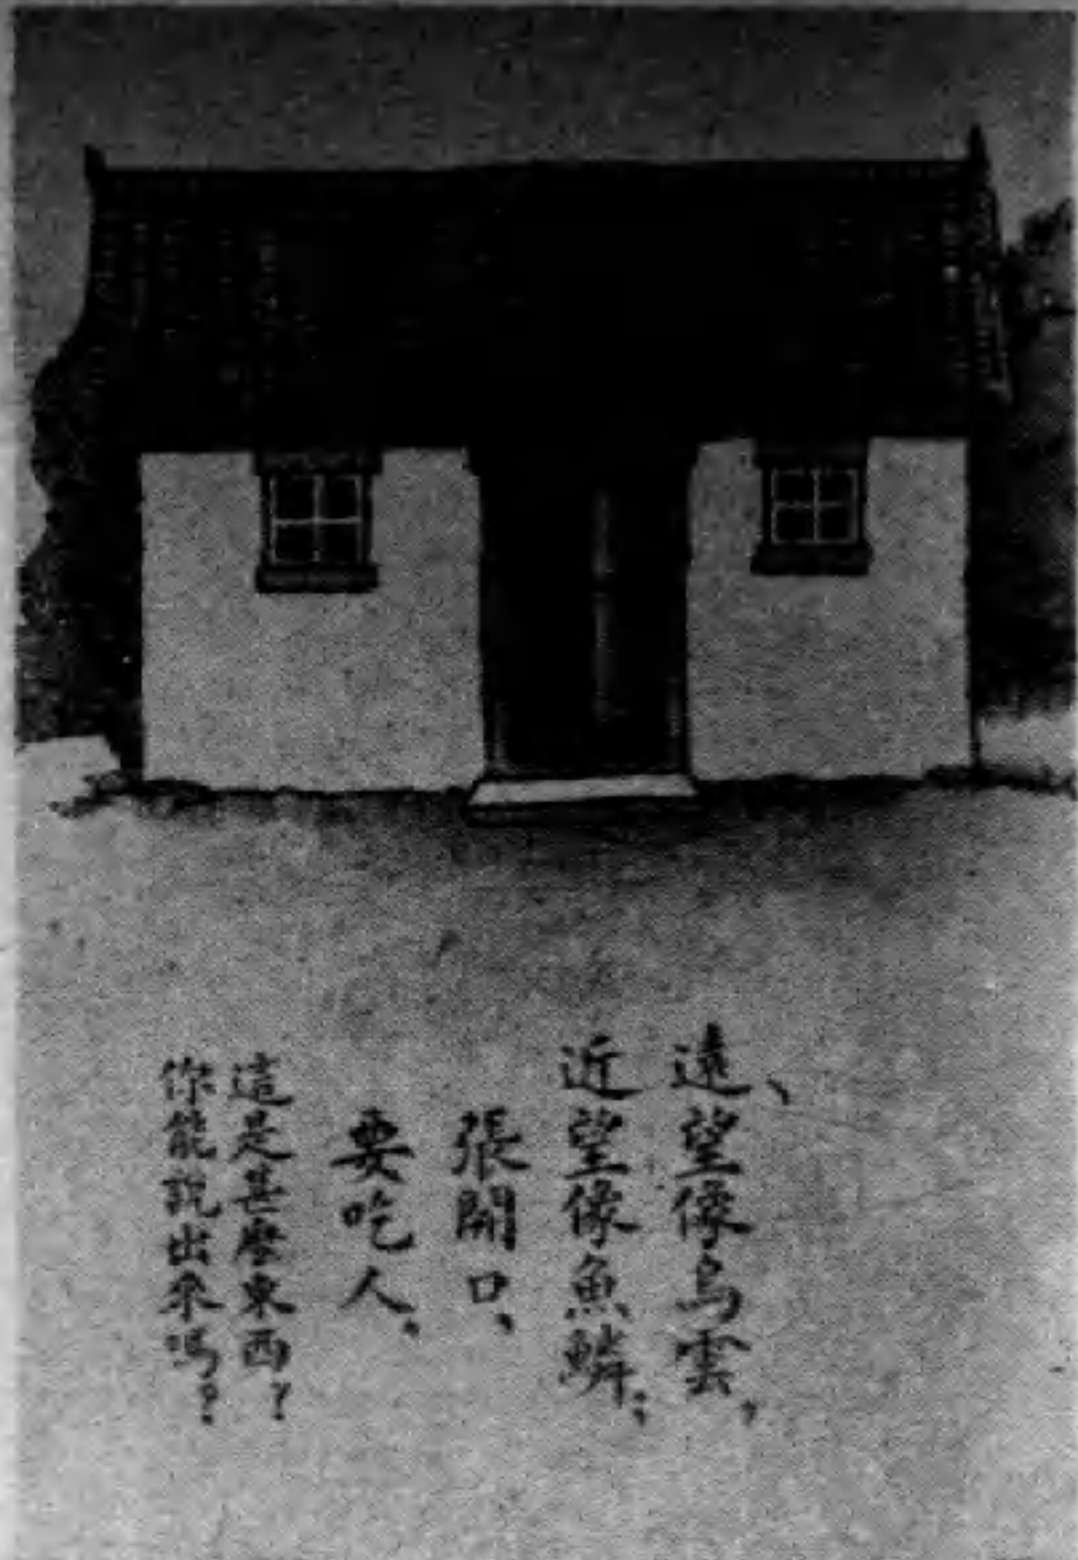 遠望像烏雲，
近望像魚鱗；
張開口，
要吃人。
這是甚麼東西？
你能說出來嗎？